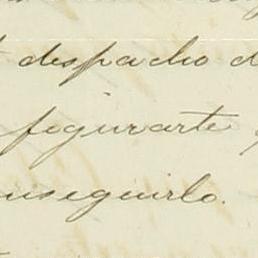 despacho d
figurarte
nseguirlo.